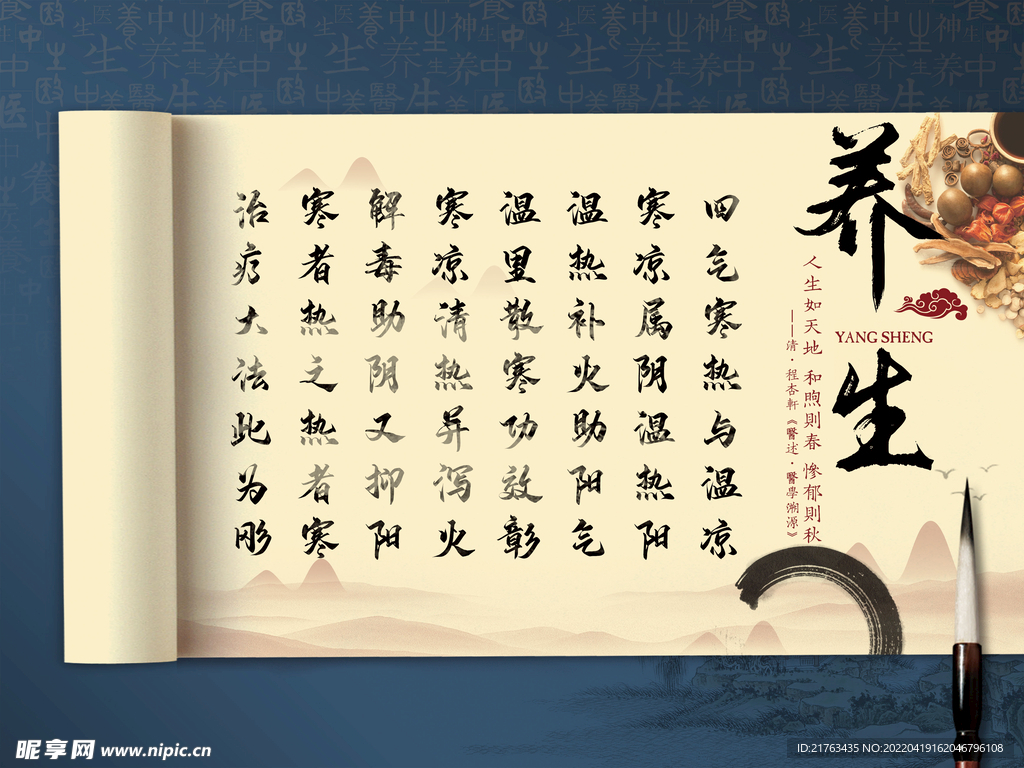 养生
YANG SHENG
人生如天地 和煦則春 慘郁則秋
——清·程杏軒《醫述·醫學溯源》
四气寒热与温凉
寒凉属阴温热阳
温热补火助阳气
温里散寒功效彰
寒凉清热并泻火
解毒助阴又抑阳
寒者热之热者寒
治疗大法此为彤
昵享网 www.nipic.cn
ID:21763435 NO:20220419162046796108